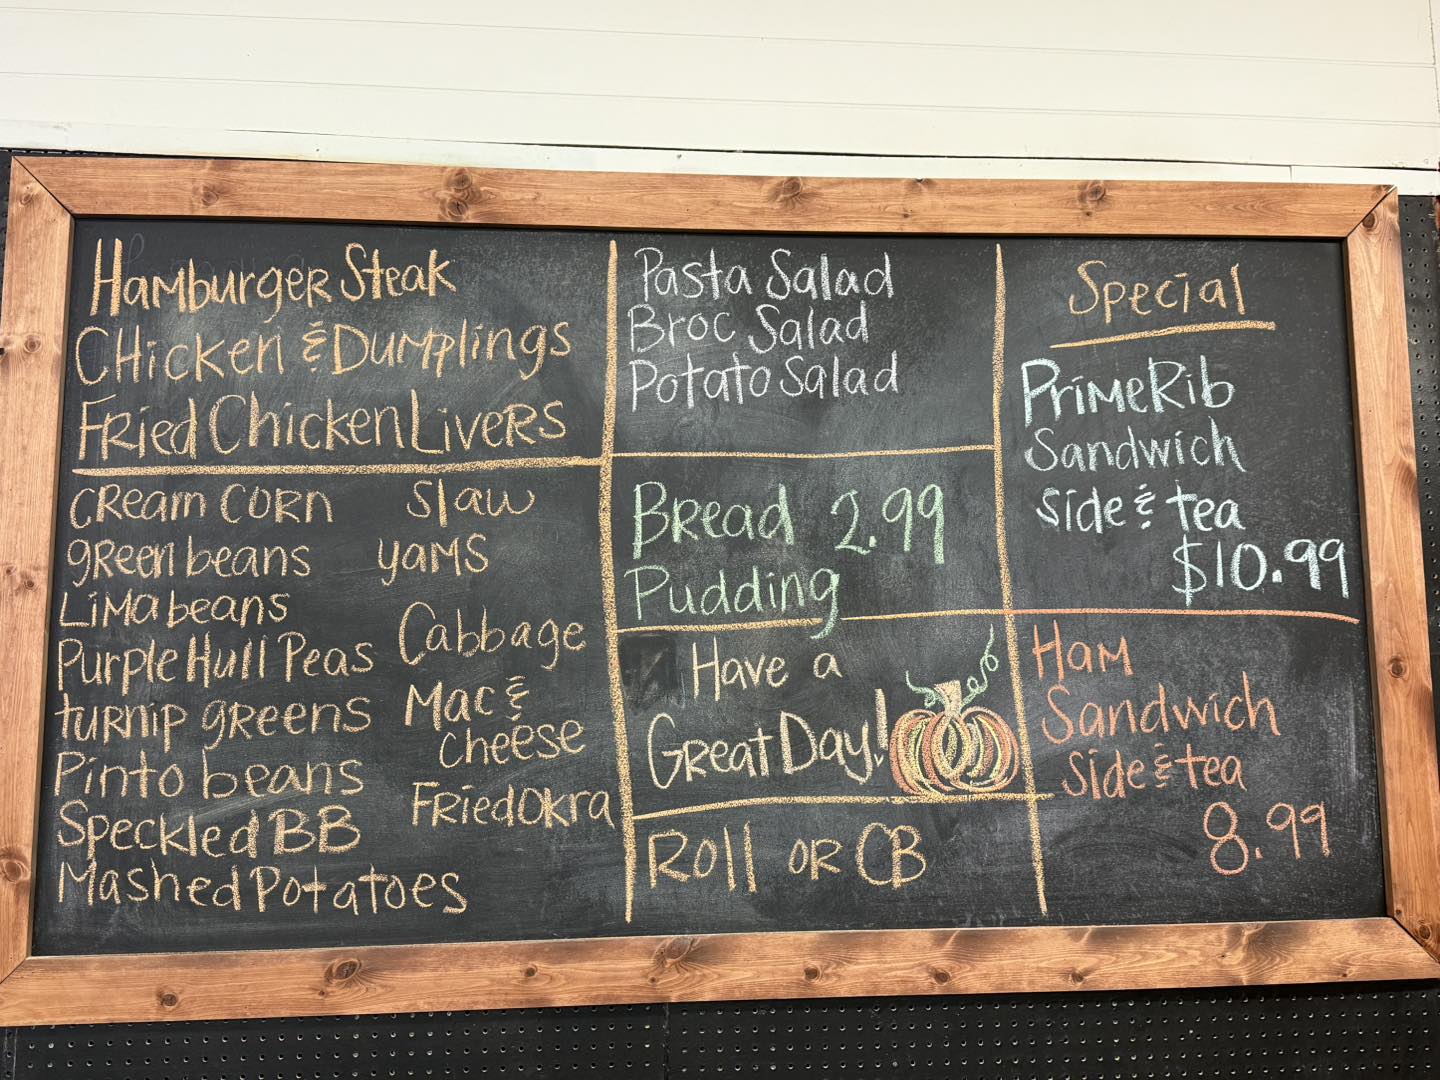 Hamburger Steak
Chicken & Dumplings
Fried Chicken Livers
cream corn
green beans
Lima beans
Purple Hull Peas
turnip greens
Pinto beans
Speckled BB
Mashed Potatoes
Slaw
yams
Cabbage
Mac &
cheese
Fried Okra
Pasta Salad
Broc Salad
Potato Salad
Bread 2.99
Pudding
Have a
Great Day!
Roll or CB
Special
Prime Rib
Sandwich
side & tea
$10.99
Ham
Sandwich
Side & tea
8.99